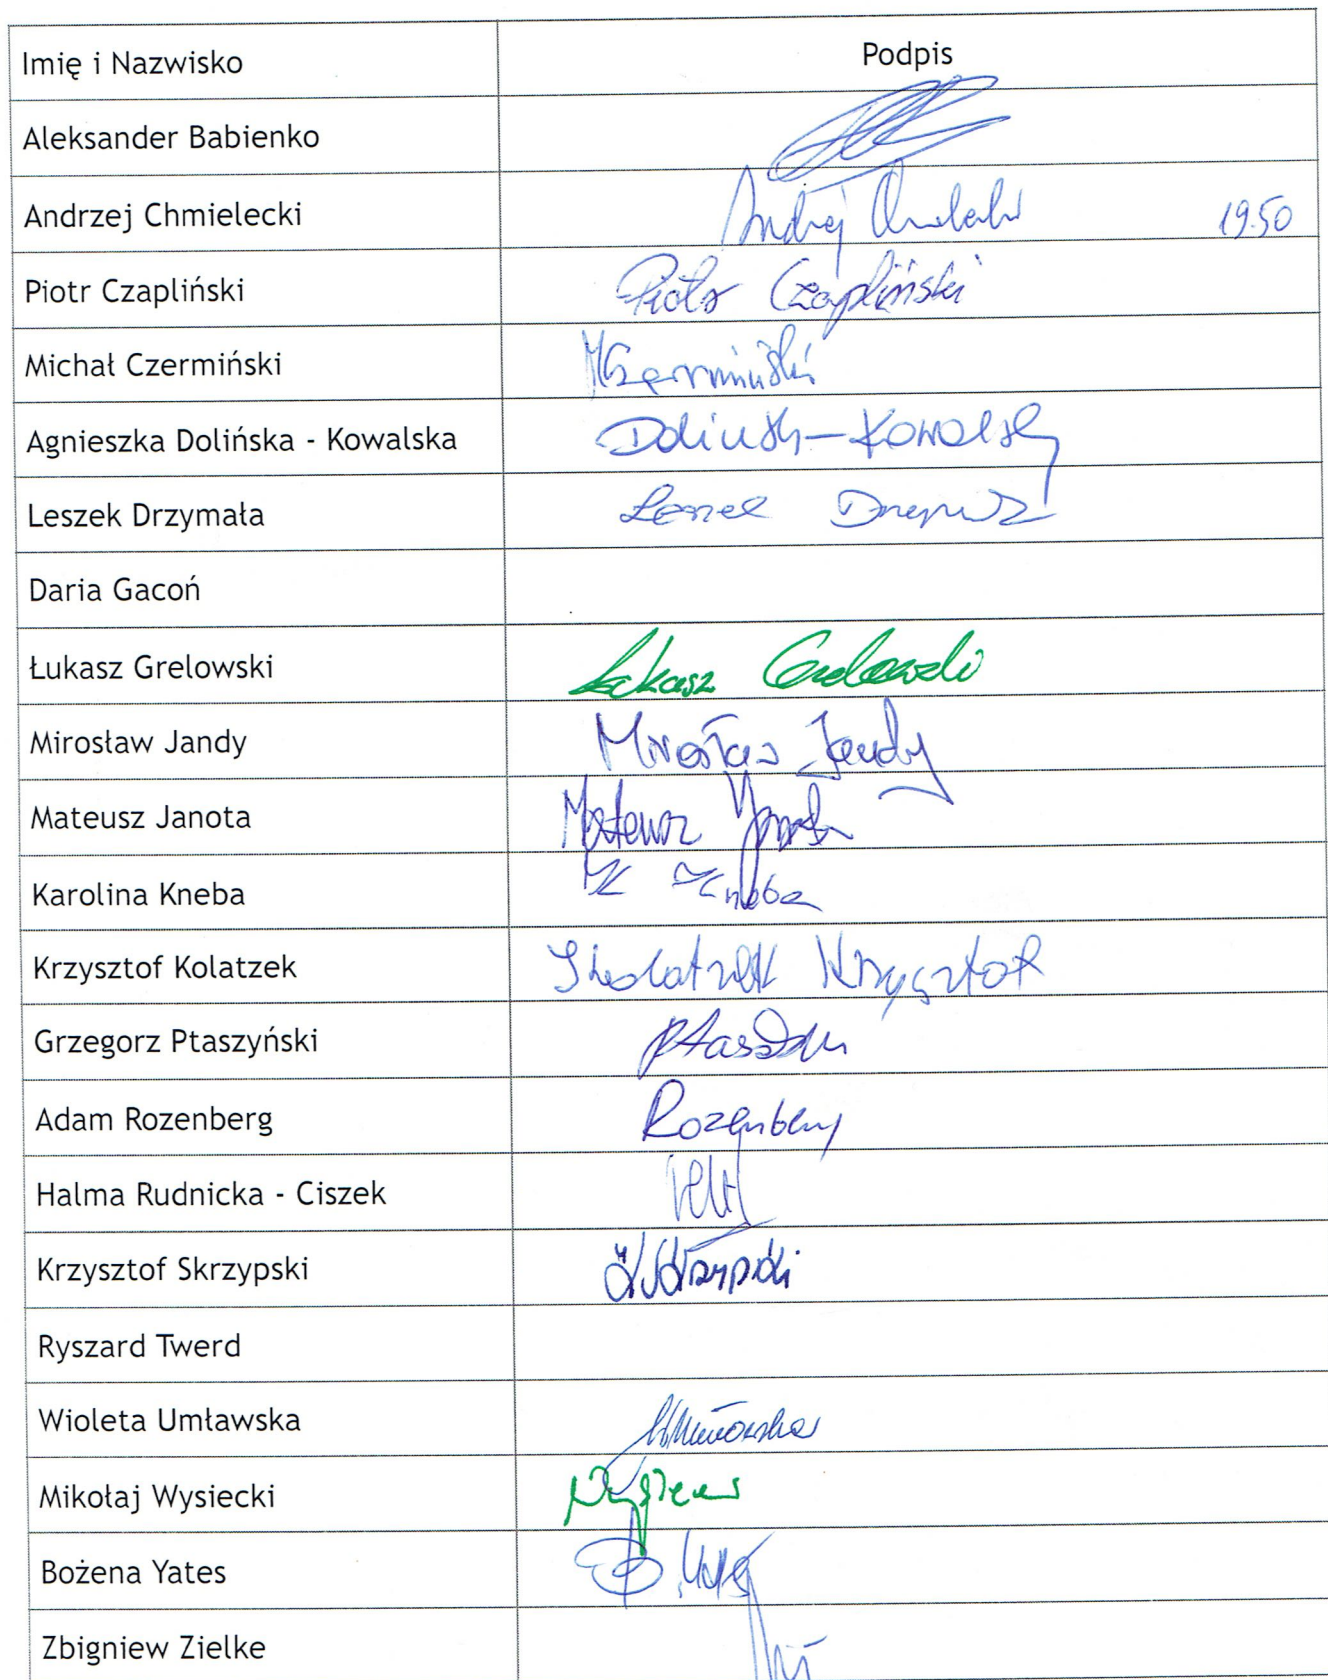 Imię i Nazwisko Podpis
Aleksander Babienko
Andrzej Chmielecki Andrzej 19.50
Piotr Czapliński Piotr Czapliński
Michał Czermiński MCzermiński
Agnieszka Dolińska - Kowalska Dolińska-Kowalska
Leszek Drzymała
Daria Gacoń
Łukasz Grelowski Łukasz Grelowski
Mirosław Jandy Mirosław Jandy
Mateusz Janota Mateusz Janota
Karolina Kneba K Kneba
Krzysztof Kolatzek Kolatzek Krzysztof
Grzegorz Ptaszyński
Adam Rozenberg Rozenberg
Halma Rudnicka - Ciszek
Krzysztof Skrzypski
Ryszard Twerd
Wioleta Umławska
Mikołaj Wysiecki
Bożena Yates
Zbigniew Zielke